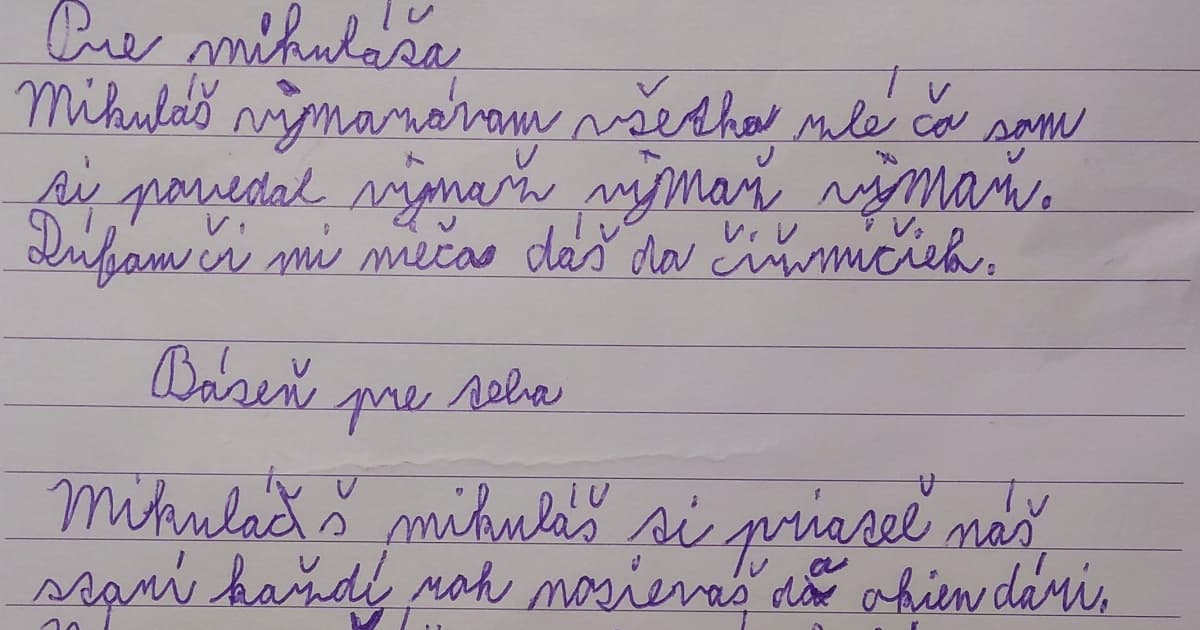 Pre mikuláša
Mikuláš výmanávam všetko zlé čo som
si povedal výmaž výmaž výmaž.
Dúfam či mi nečas dáš do čižmičiek.
Báseň pre seba
Mikuláš š mikuláš si priasel náš
starí každí rok nosievaš do okien dári.